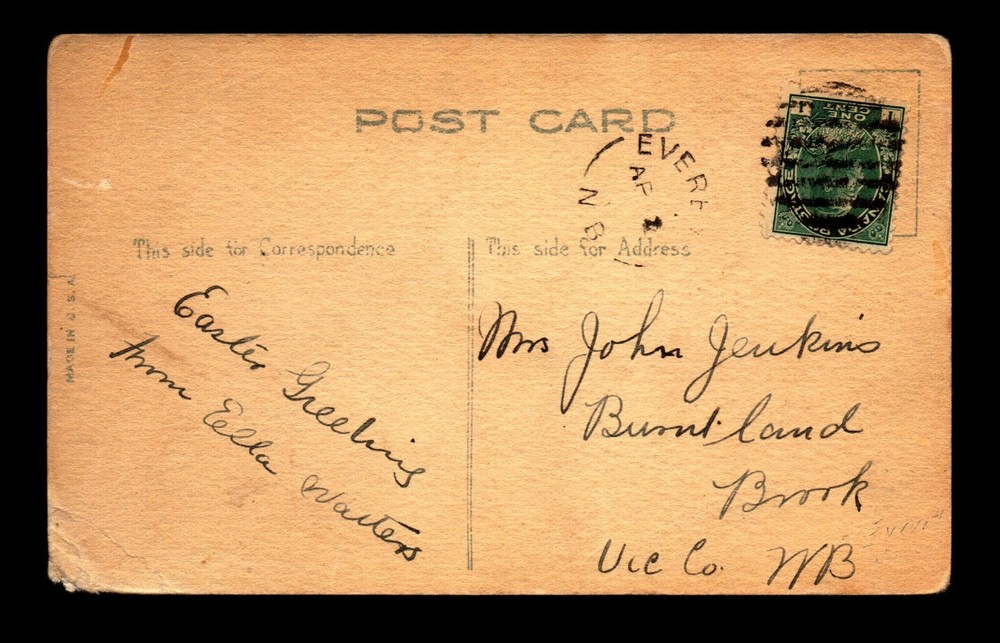 POST CARD
ONE
CENT
1
1
EVERE
AP 1
N B
This side for Correspondence
This side for Address
MADE IN U.S.A.
Easter Greeting
from Ella Walters
Mrs John Jenkins
Burnt land
Brook
Vic Co. NB